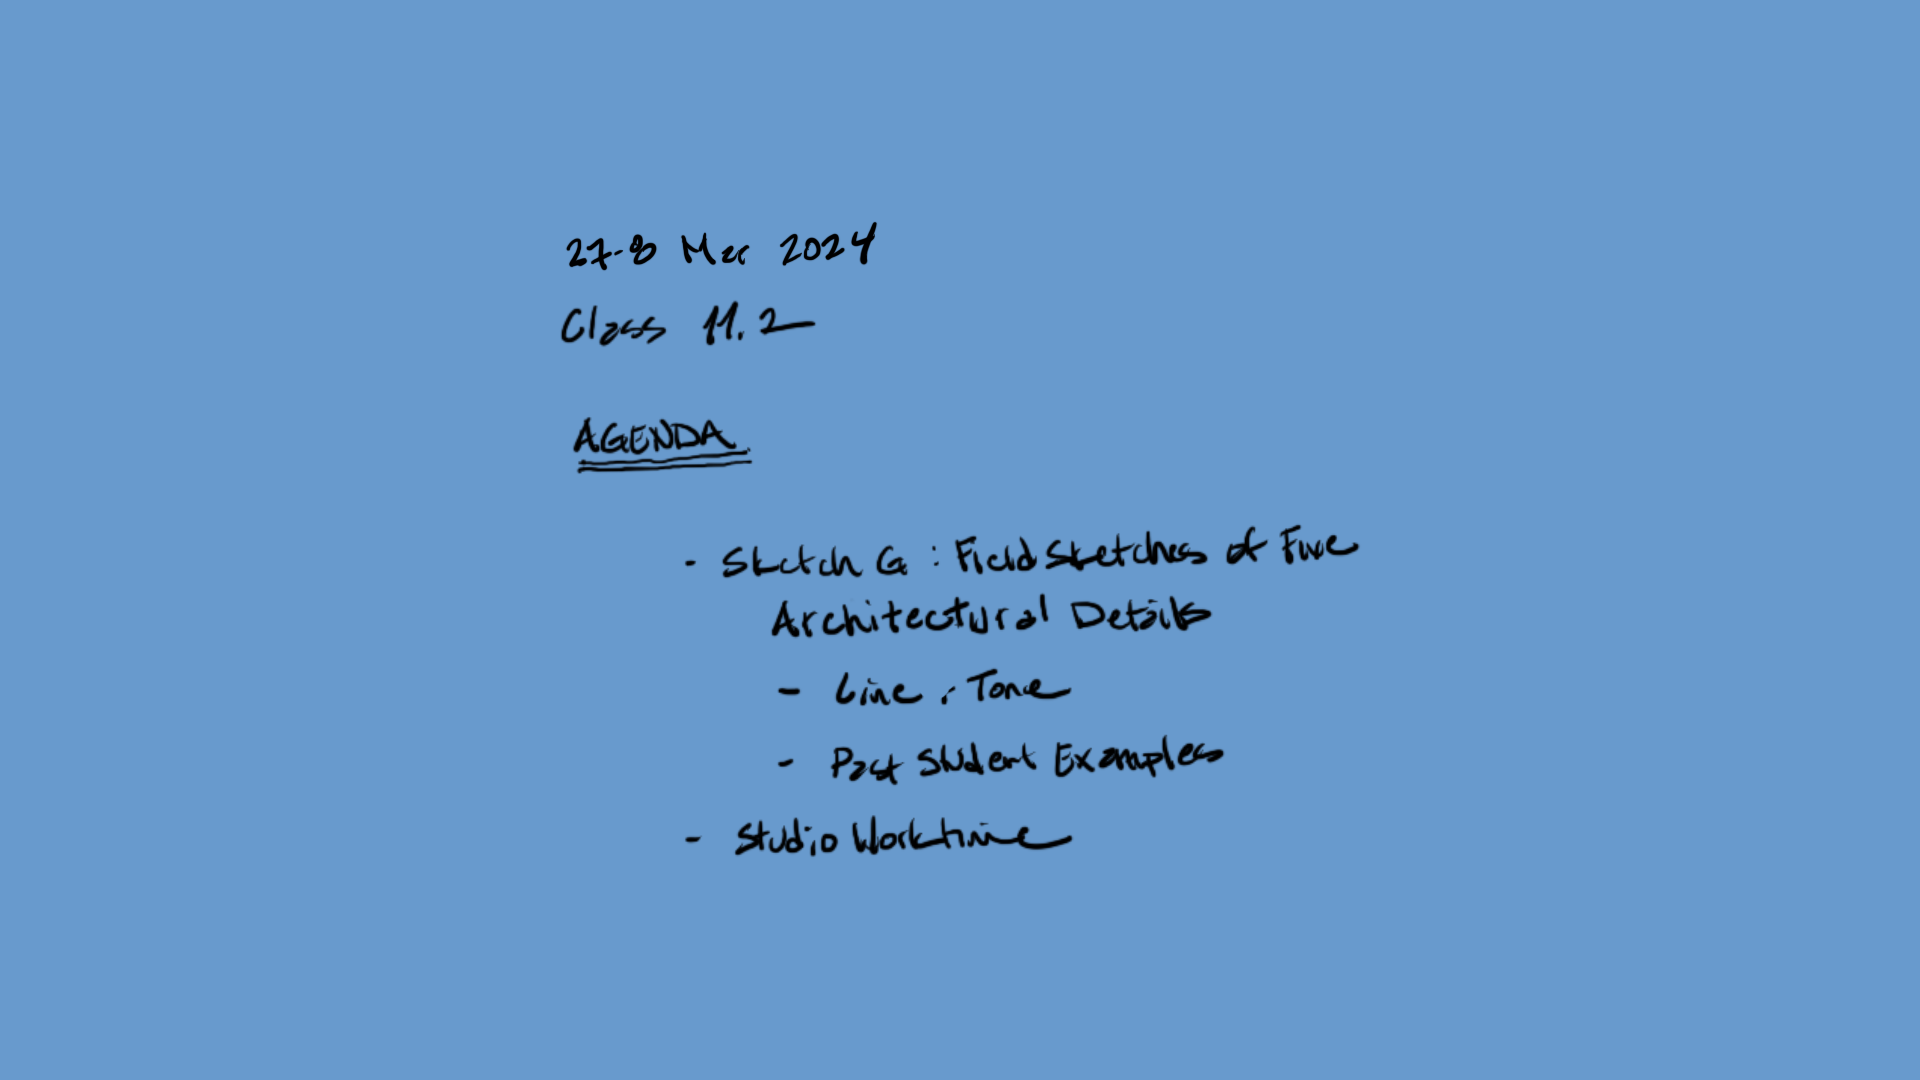 27-8 Mar 2024
Class 11.2
AGENDA
- Sketch G : Field Sketches of Five
Architectural Details
- Line : Tone
- Past Student Examples
- Studio Worktime